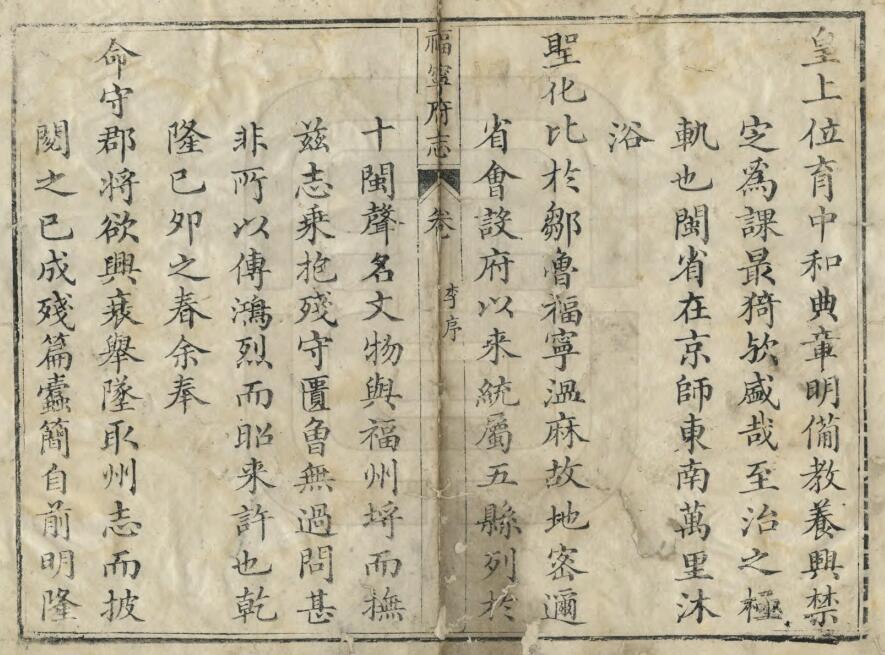 皇上位育中和典章明備教養興禁
定爲課最猗歟盛哉至治之極
軌也閩省在京師東南萬里沐
浴
聖化比於鄒魯福寧溫麻故地密邇
省會設府以来統屬五縣列於
福寧府志
卷
李序
十閩聲名文物與福州埒而撫
兹志乗抱殘守匱魯無過問甚
非所以傳鴻烈而昭来許也乾
隆已夘之春余奉
命守郡将欲興衰舉墜取州志而披
閱之已成殘篇蠧簡自前明隆